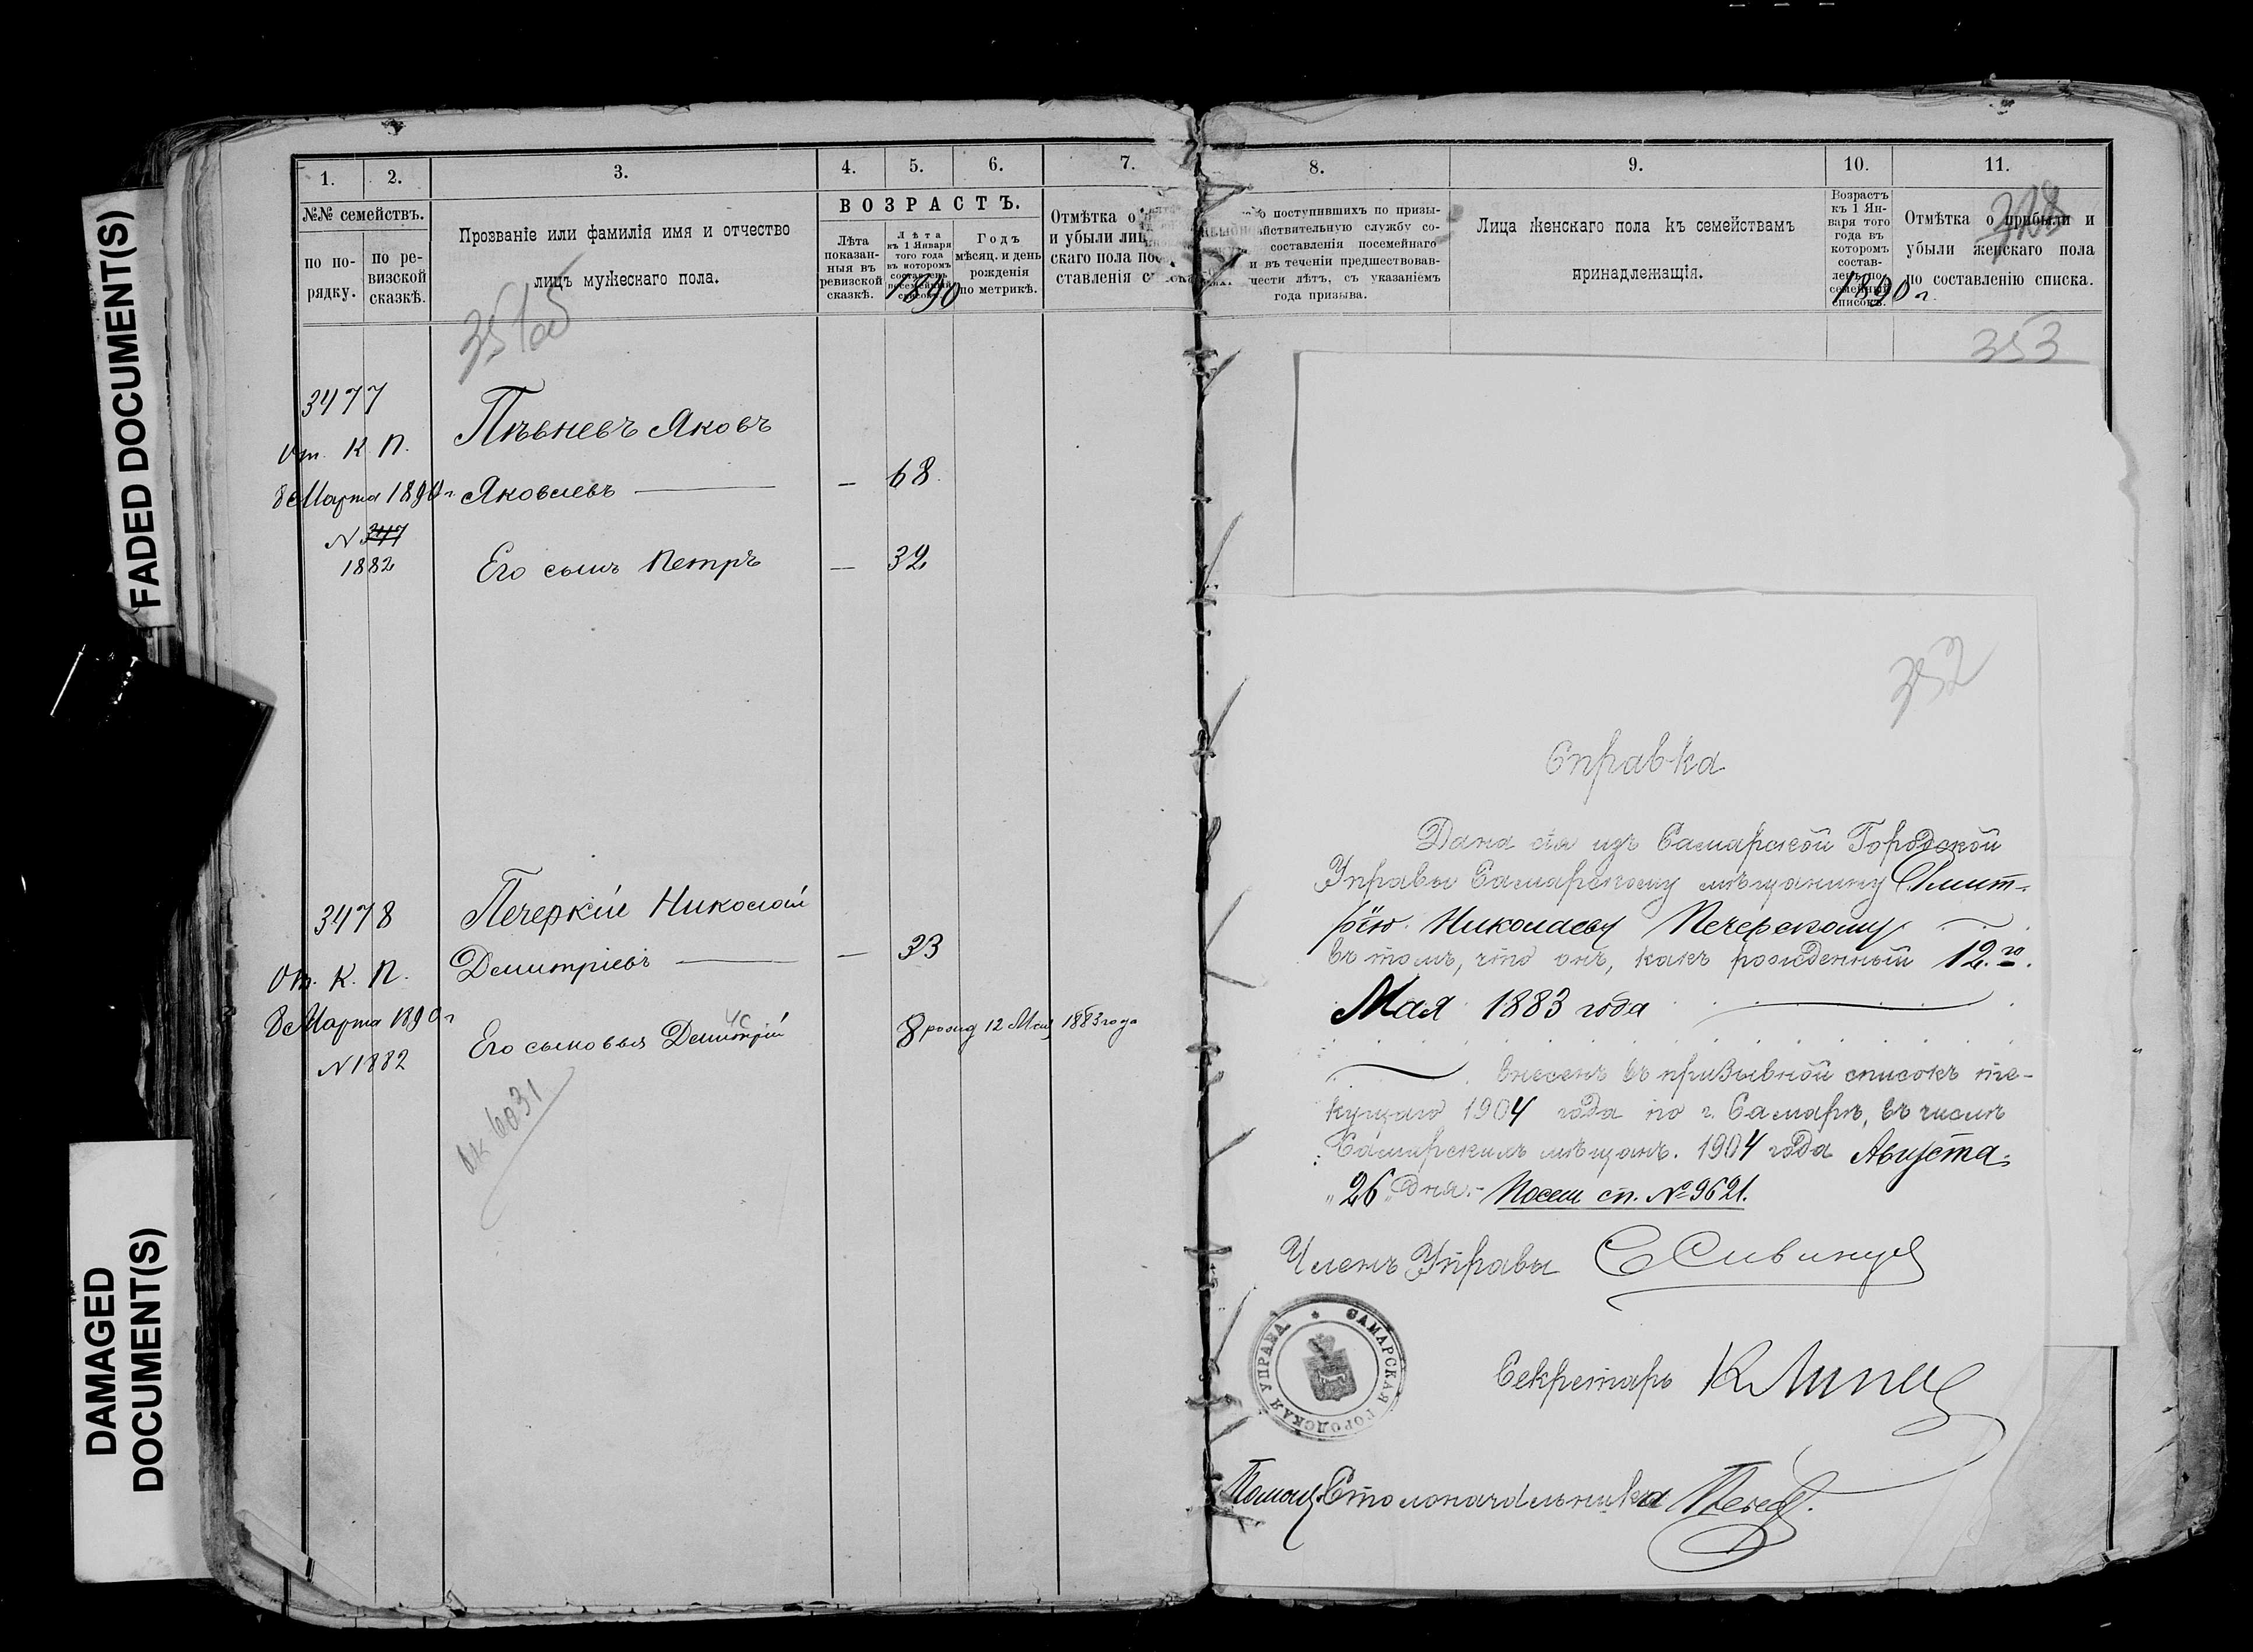 FADED DOCUMENT(S)
DAMAGED DOCUMENT(S)
1.
2.
3.
4.
5.
6.
7.
№№ семействъ.
по по-
рядку.
по ре-
визской
сказкѣ.
Прозваніе или фамилія имя и отчество
лицъ мужескаго пола.
ВОЗРАСТЪ.
Лѣта
показан-
ныя въ
ревизской
сказкѣ.
Лѣта
къ 1 Января
того года
въ которомъ
составленъ
посемейный
списокъ.
1890
Годъ
мѣсяц. и день
рожденія
по метрикѣ.
Отмѣтка о
и убыли лиц
скаго пола пос
ставленія с
3477
От. К. П.
8 Марта 1890 г
N 347
1882
Пѣвневъ Яковъ
Яковлевъ — 68
Его сынъ Петръ — 32
3478
От. К. П.
8 Марта 1890 г
N 1882
Печеркій Николай
Дмитріевъ — 33
Его сыновья Дмитрій 8 рожд 12 Мая 1883 года
6031
8.
9.
10.
11.
о поступившихъ по призы-
йствительную службу со-
составленія посемейнаго
и въ теченіи предшествовав-
шести лѣтъ, съ указаніемъ
года призыва.
Лица женскаго пола къ семействамъ
принадлежащія.
Возрастъ
къ 1 Ян-
варя того
года въ
которомъ
состав-
ленъ по-
семейный
списокъ.
1890 г.
Отмѣтка о прибыли и
убыли женскаго пола
по составленію списка.
353
352
Справка
Дана сія изъ Самарской Городской
Управы Самарскому мѣщанину Дмит-
рію Николаеву Печерскому
въ томъ, что онъ, какъ рожденный 12.го
Мая 1883 года
внесенъ въ призывной списокъ те-
кущаго 1904 года по г. Самарѣ, въ числѣ
Самарскихъ мѣщанъ. 1904 года Августа
"26" дня.- Посем сп. № 9621.
Членъ Управы
САМАРСКАЯ ГОРОДСКАЯ УПРАВА
Секретарь
Помощ. Столоначальника